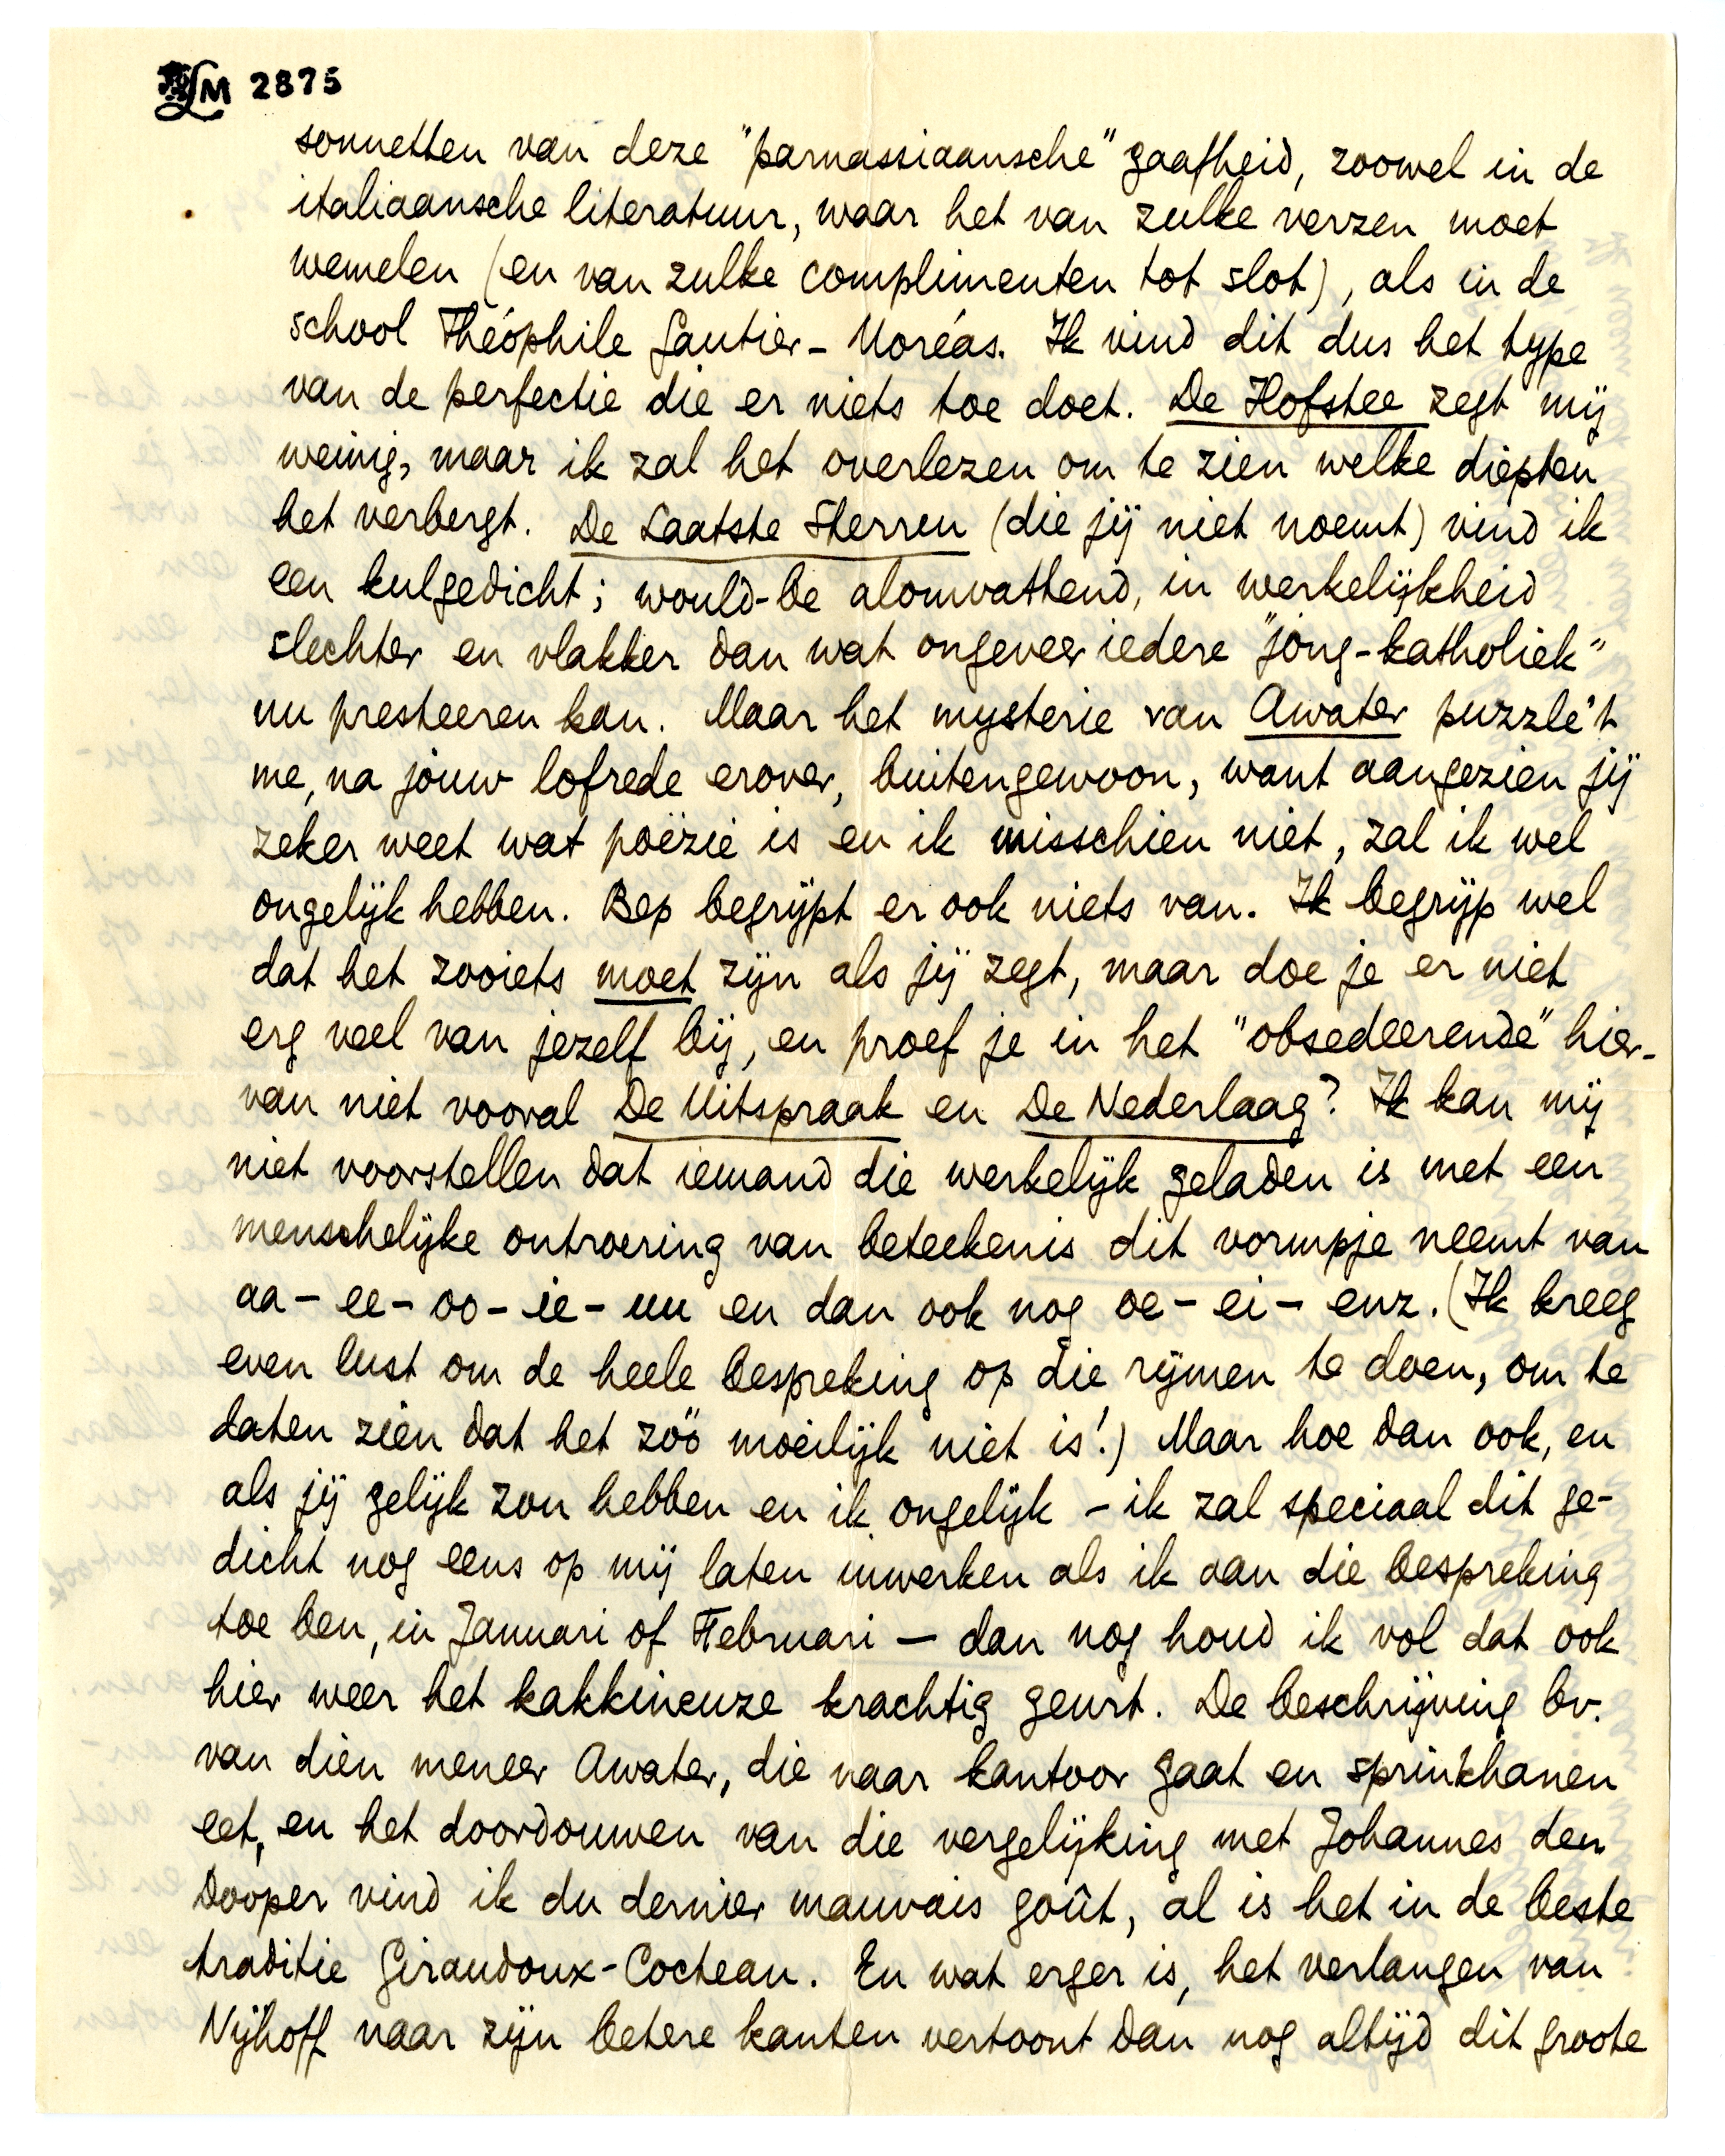 LM 2875
sonnetten van deze "parnassiaansche" gaafheid, zoowel in de
italiaansche literatuur, waar het van zulke verzen moet
wemelen (en van zulke complimenten tot slot), als in de
school Théophile Gautier - Moréas. Ik vind dit dus het type
van de perfectie die er niets toe doet. De Hofstee zegt mij
weinig, maar ik zal het overlezen om te zien welke diepten
het verbergt. De Laatste Sterren (die jij niet noemt) vind ik
een kulgedicht; would-be alomvattend, in werkelijkheid
slechter en vlakker dan wat ongeveer iedere "jong-katholiek"
nu presteeren kan. Maar het mysterie van Awater puzzle't
me, na jouw lofrede erover, buitengewoon, want aangezien jij
zeker weet wat poëzie is en ik misschien niet, zal ik wel
ongelijk hebben. Bep begrijpt er ook niets van. Ik begrijp wel
dat het zooiets moet zijn als jij zegt, maar doe je er niet
erg veel van jezelf bij, en proef je in het "obsedeerende" hier-
van niet vooral De Uitspraak en De Nederlaag? Ik kan mij
niet voorstellen dat iemand die werkelijk geladen is met een
menschelijke ontroering van beteekenis dit vormpje neemt van
aa - ee - oo - ie - uu en dan ook nog oe - ei - enz. (Ik kreeg
even lust om de heele bespreking op die rijmen te doen, om te
laten zien dat het zóó moeilijk niet is!) Maar hoe dan ook, en
als jij gelijk zou hebben en ik ongelijk - ik zal speciaal dit ge-
dicht nog eens op mij laten inwerken als ik aan die bespreking
toe ben, in Januari of Februari - dan nog houd ik vol dat ook
hier weer het kakkineuze krachtig geurt. De beschrijving bv.
van dien meneer Awater, die naar kantoor gaat en sprinkhanen
eet, en het doordouwen van die vergelijking met Johannes den
Dooper vind ik du dernier mauvais goût, al is het in de beste
traditie Giraudoux-Cocteau. En wat erger is, het verlangen van
Nijhoff naar zijn betere kanten vertoont dan nog altijd dit groote